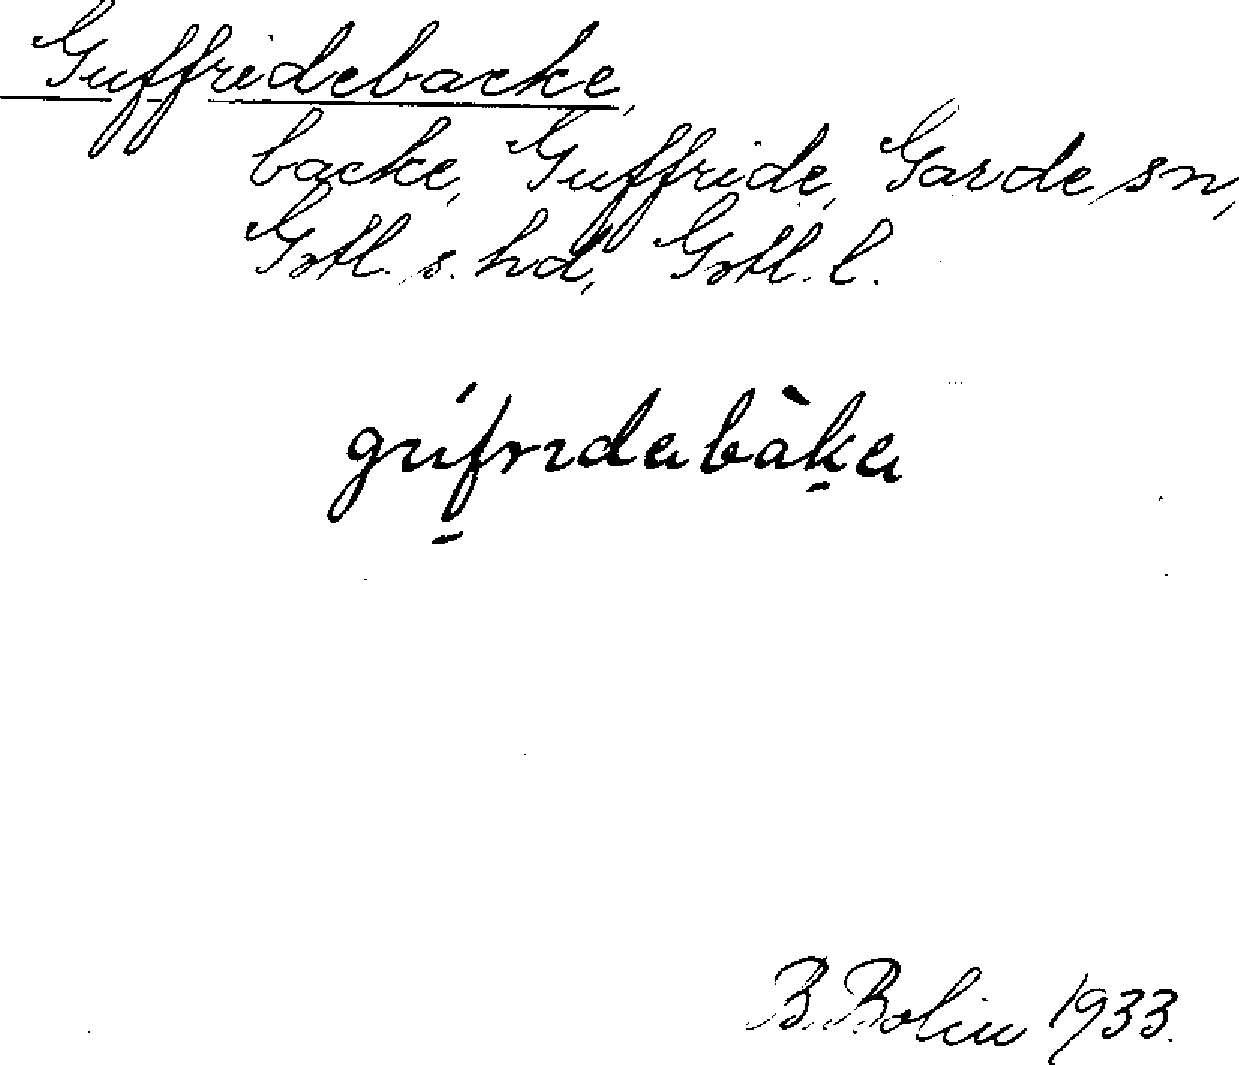 Guffridebacke,
backe, Guffride, Garde sn,
Gotl. s. hd, Gotl. l.
gúfrıdabàka
B. Bolin 1933.